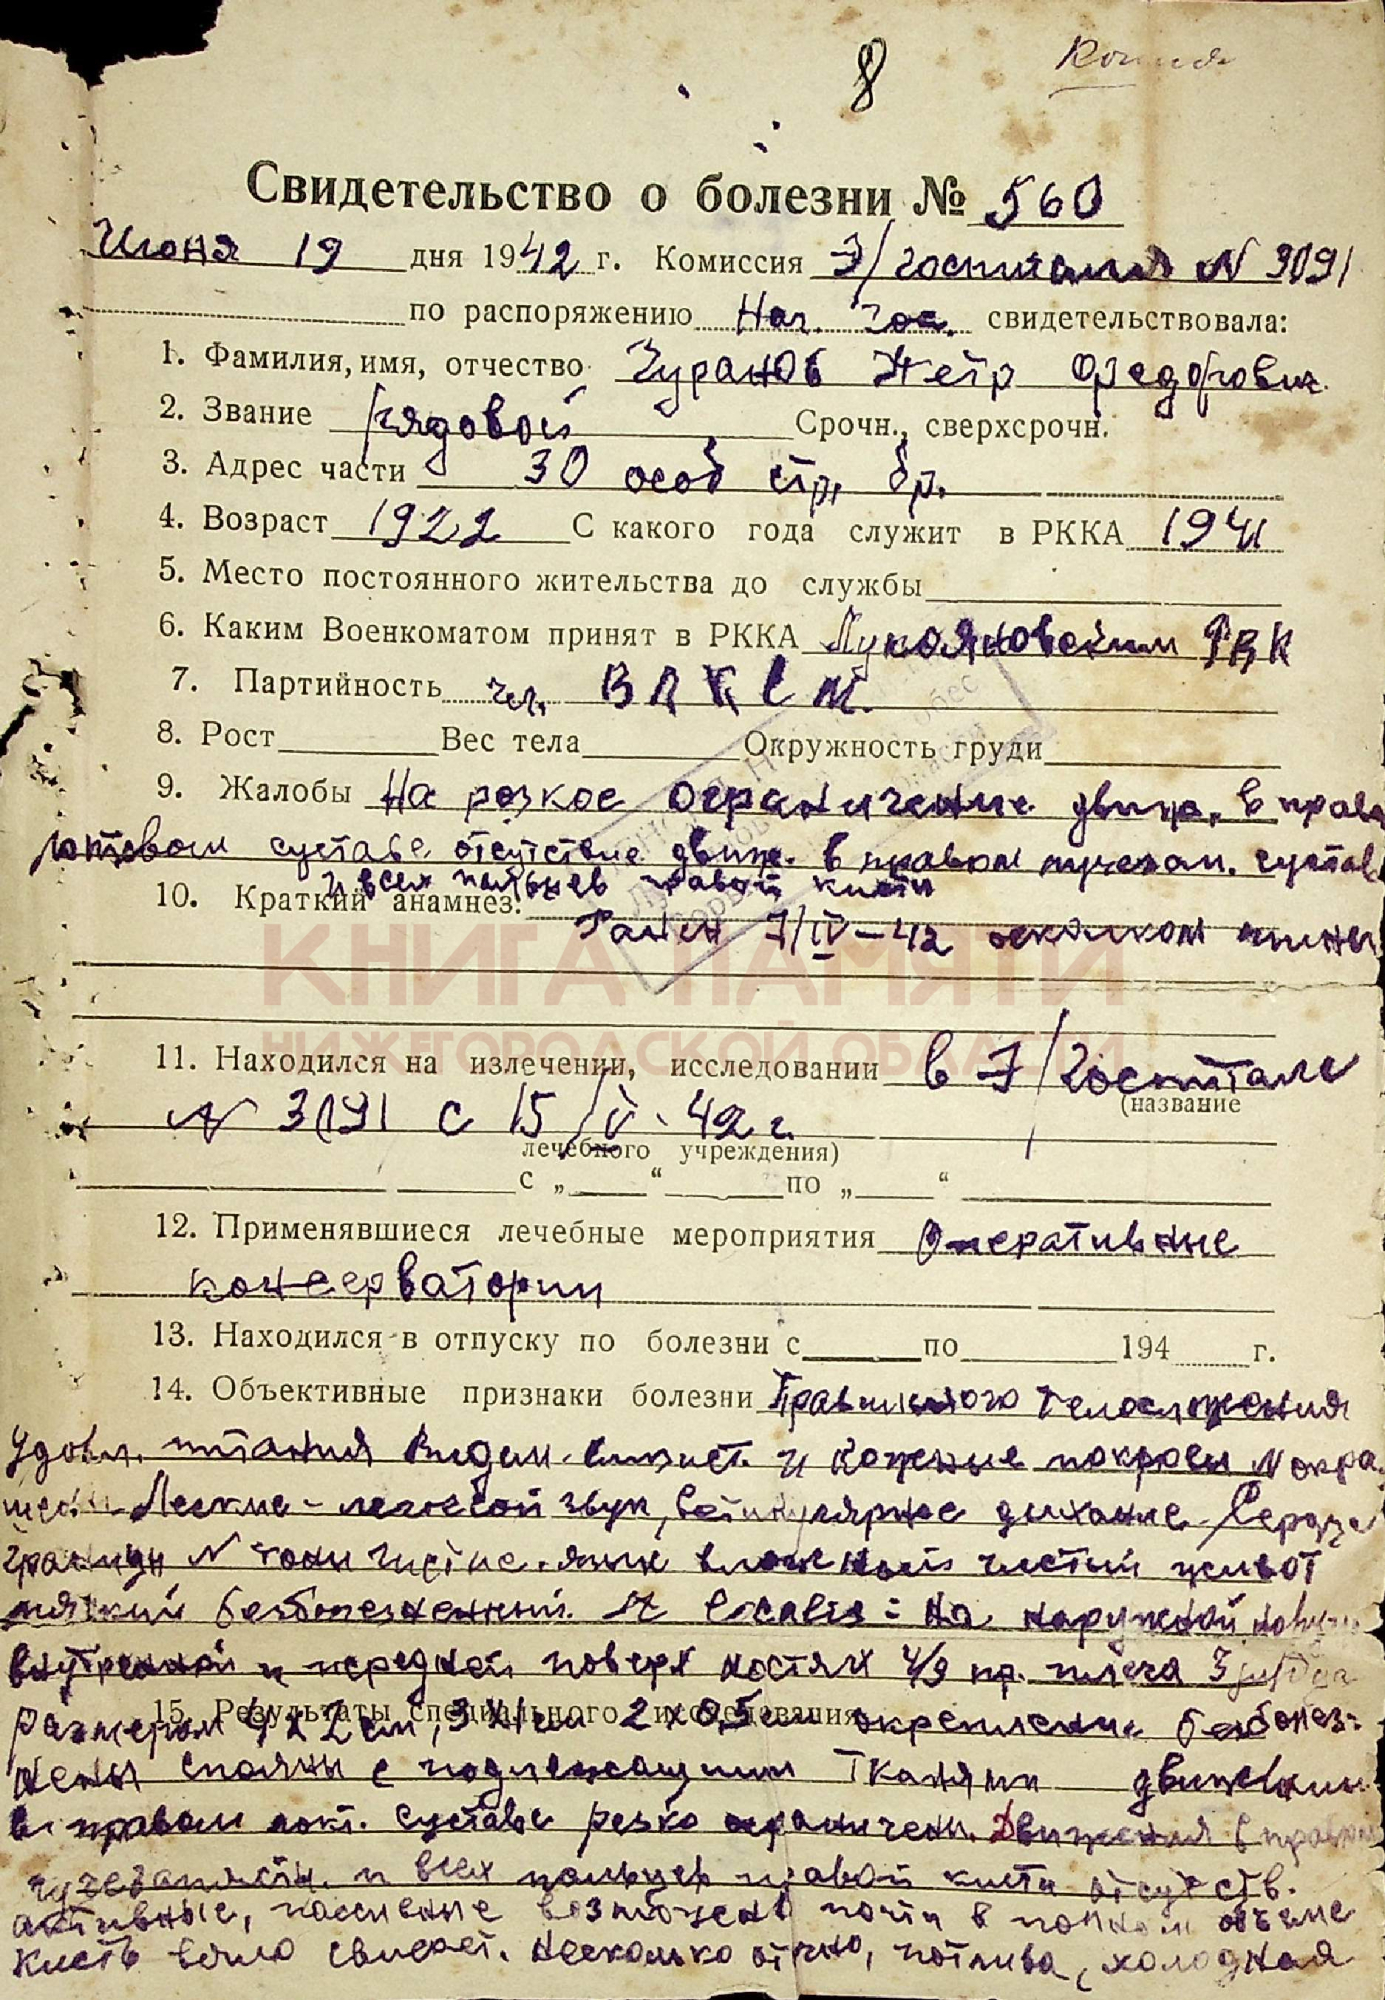 8
Копия
Свидетельство о болезни № 560
Июня 19 дня 1942 г. Комиссия Э/госпиталя N 3091
по распоряжению Нач. Гос. свидетельствовала:
1. Фамилия, имя, отчество Чуранов Петр Федорович
2. Звание рядовой Срочн., сверхсрочн.
3. Адрес части 30 особ стр. бр.
4. Возраст 1922 С какого года служит в РККА 1941
5. Место постоянного жительства до службы
6. Каким Военкоматом принят в РККА Лукояновским РВК
7. Партийность чл. ВЛКСМ.
8. Рост Вес тела Окружность груди
9. Жалобы На резкое ограничение движ. в право
локтевом суставе отсутствие движ. в правом лучезап. сустав
и всех пальцев правой кисти
10. Краткий анамнез:
Ранен 7/IV-42 осколком мины
КНИГА ПАМЯТИ
НИЖЕГОРОДСКОЙ ОБЛАСТИ
11. Находился на излечении, исследовании в Э/Госпитале
(название
N 3091 с 15/V-42 г.
лечебного учреждения)
с „ “ по „ “
12. Применявшиеся лечебные мероприятия Оперативные
консерватории
13. Находился в отпуску по болезни с по 194 г.
14. Объективные признаки болезни Правильного телосложения
удовл. питания Видим. слизист. и кожные покровы N окра
шен. Легкие - легочной звук, везикулярное дыхание. Сердце
границы N тоны чистые. язык влажный чистый живот
мягкий безболезненный. St localis: На наружной
внутренней и передней поверхностях пр. плеча 3 рубца
15. Результаты специального исследования
размером 4x2 см, 3x1 см 2x0,5 см окрепшие безболез-
нены спаяны с подлежащими тканями движения
в правом локт. суставе резко ограничены. Движения в правом
лучезапястн. и всех пальцев правой кисти отсутств.
активные, пассивные возможны почти в полном объеме
Кисть вяло свисает. несколько отечна, потлива, холодная